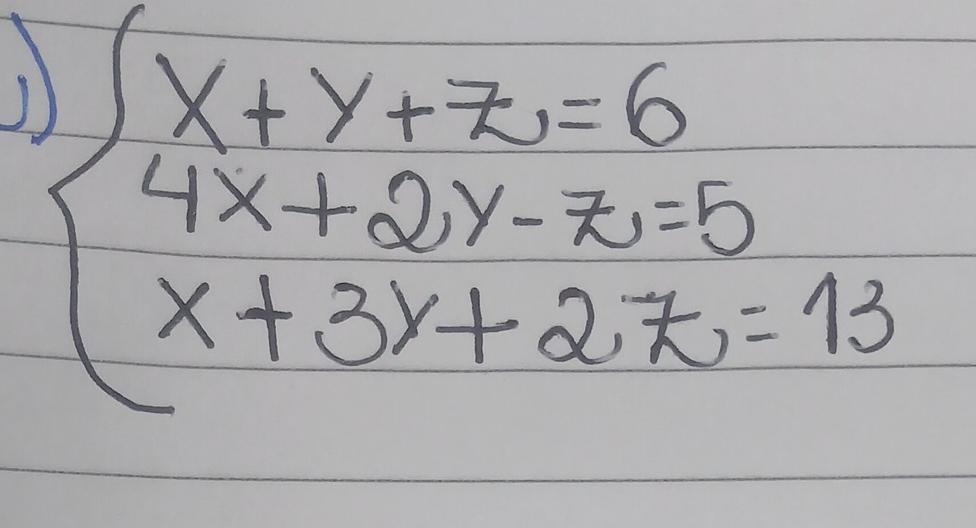 J) X + Y + Z = 6
4X + 2Y - Z = 5
X + 3Y + 2Z = 13